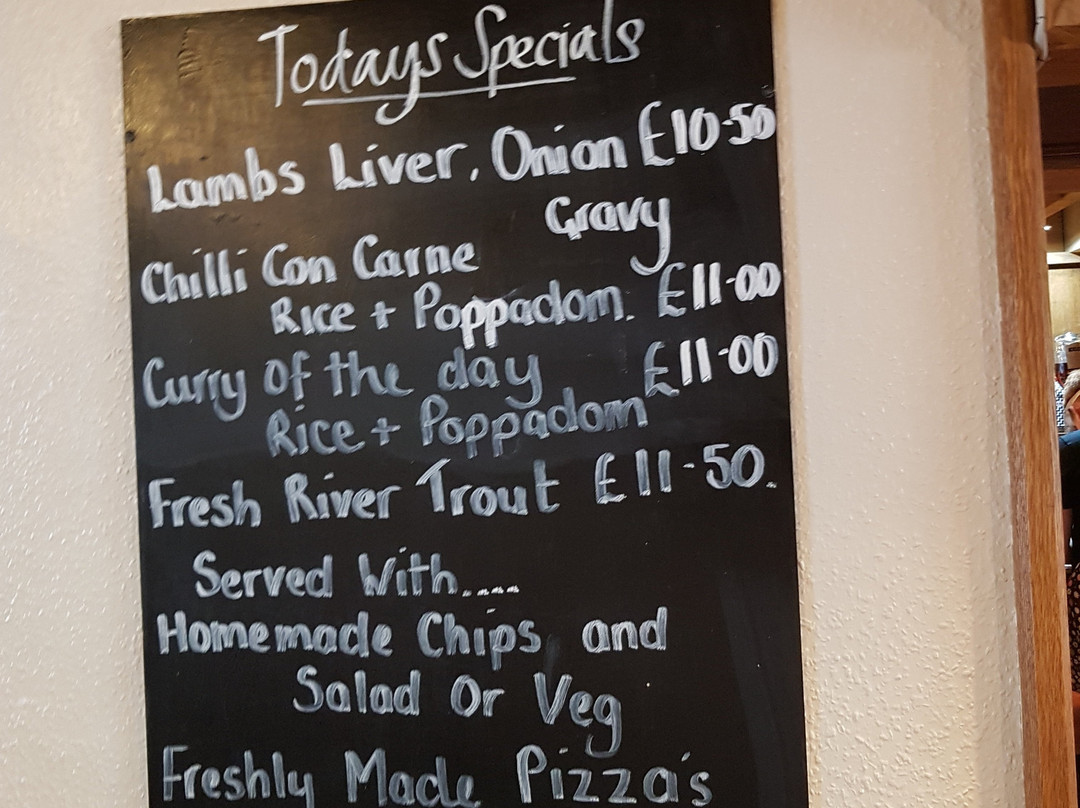 Todays Specials
Lambs Liver, Onion £10-50
Gravy
Chilli Con Carne
Rice + Poppadom. £11-00
Curry of the day £11-00
Rice + Poppadom
Fresh River Trout £11-50.
Served With.....
Homemade Chips and
Salad Or Veg
Freshly Made Pizza's